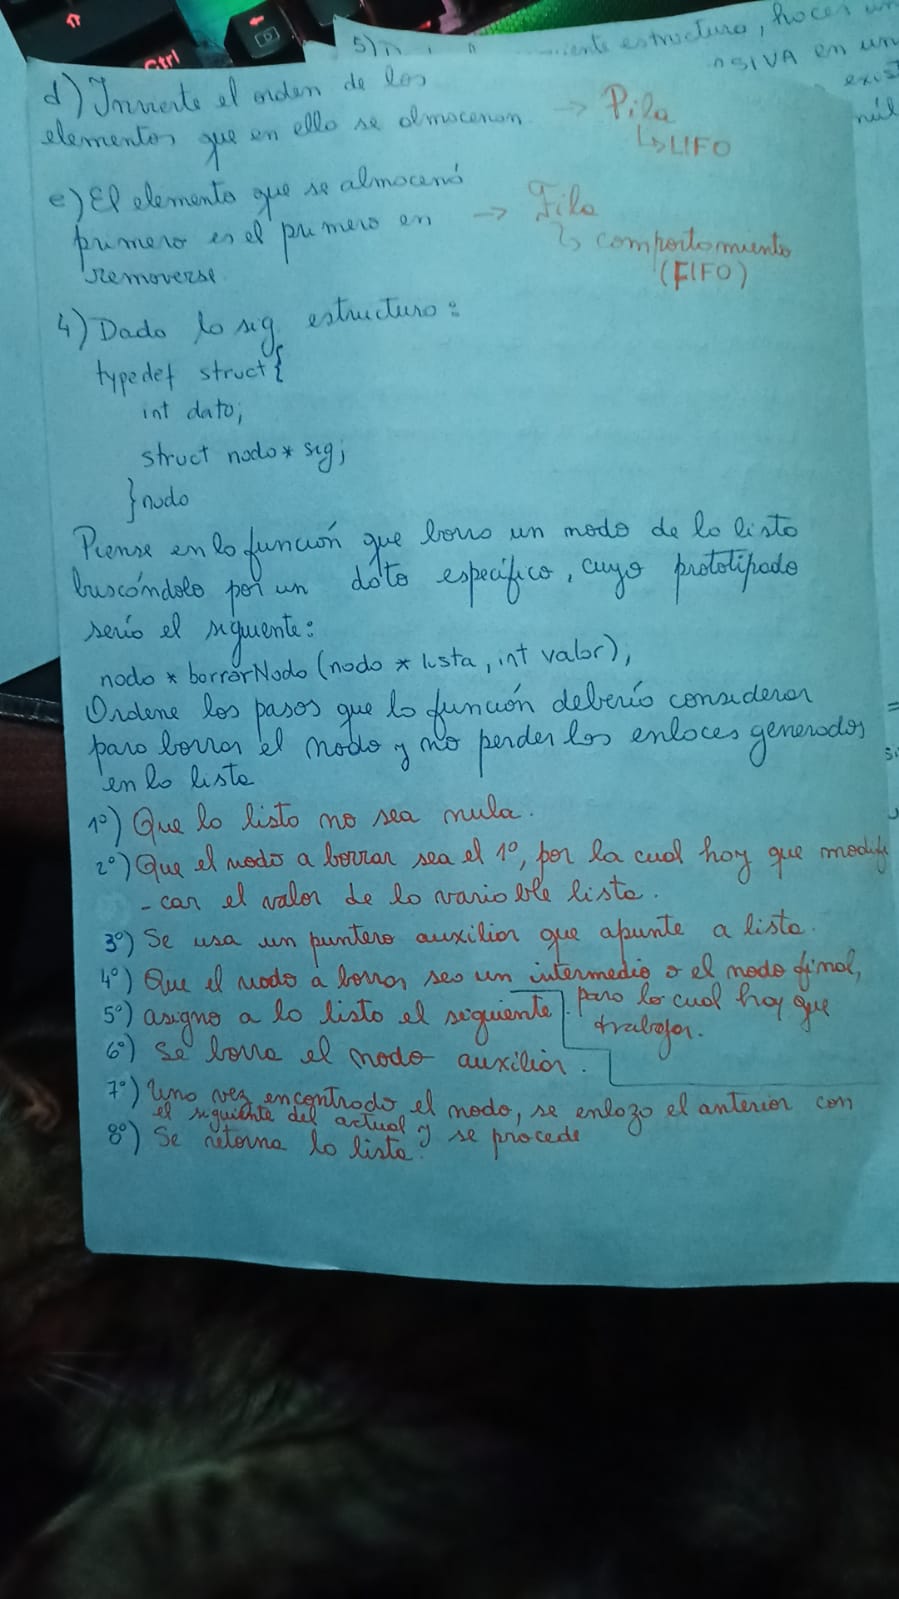 Ctrl
5)
iente estructura, haces un
nSIVA en un
exist
núl
d) Invierte el orden de los
elementos que en ella se almacenan → Pila
↳ LIFO
e) El elemento que se almacenó
primero es el primero en → Fila
removerse.
↳ comportamiento
(FIFO)
4) Dada la sig estructura:
typedef struct{
int dato;
struct nodo* sig;
}nodo
Piense en la función que borra un nodo de la lista
buscándolo por un dato específico, cuyo prototipado
sería el siguiente:
nodo * borrarNodo (nodo * lista, int valor);
Ordene los pasos que la función debería considerar
para borrar el nodo y no perder los enlaces generados
en la lista
1º) Que la lista no sea nula.
2º) Que el nodo a borrar sea el 1º, por la cual hay que modifi
-car el valor de la variable lista.
3º) Se usa un puntero auxiliar que apunte a lista.
4º) Que el nodo a borrar sea un intermedio o el nodo final,
para lo cual hay que
trabajar.
5º) asigno a la lista el siguiente.
6º) Se borra el nodo auxiliar.
7º) Una vez encontrado el nodo, se enlaza el anterior con
el siguiente del actual y se procede
8º) Se retorna la lista.